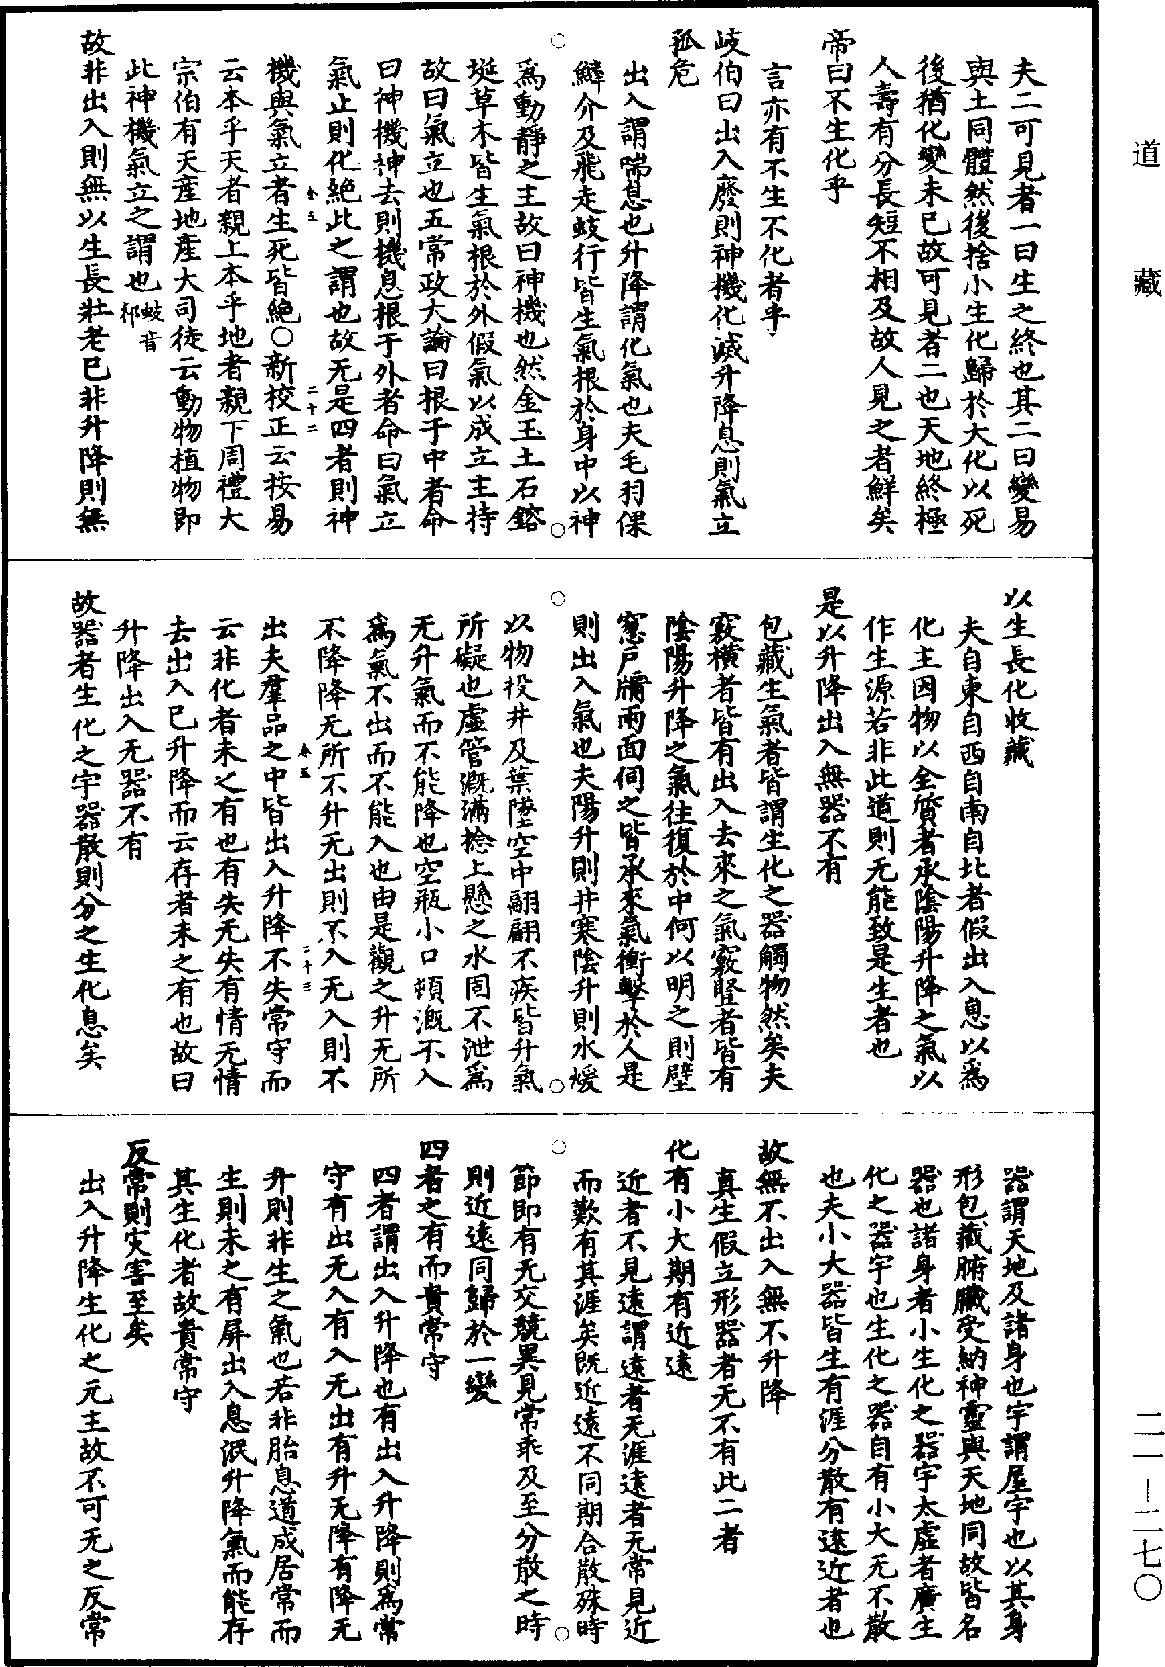 夫二可見者一曰生之終也其二曰變易
與土同體然後捨小生化歸於大化以死
後猶化變未已故可見者二也天地終極
人壽有分長短不相及故人見之者鮮矣
帝曰不生化乎
言亦有不生不化者乎
岐伯曰出入廢則神機化滅升降息則氣立
孤危
出入謂喘息也升降謂化氣也夫毛羽倮
鱗介及飛走蚑行皆生氣根於身中以神
爲動靜之主故曰神機也然金玉土石鎔
埏草木皆生氣根於外假氣以成立主持
故曰氣立也五常政大論曰根于中者命
曰神機神去則機息根于外者命曰氣立
氣止則化絶此之謂也故无是四者則神
卷五
二十二
機與氣立者生死皆絶○新校正云按易
云本乎天者親上本乎地者親下周禮大
宗伯有天產地產大司徒云動物植物即
此神機氣立之謂也蚑音祁
故非出入則無以生長壯老已非升降則無
以生長化收藏
夫自東自西自南自北者假出入息以爲
化主因物以全質者承陰陽升降之氣以
作生源若非此道則无能致是生者也
是以升降出入無器不有
包藏生氣者皆謂生化之器觸物然矣夫
竅橫者皆有出入去來之氣竅豎者皆有
陰陽升降之氣往復於中何以明之則壁
窻戶牖兩面伺之皆承來氣衝擊於人是
則出入氣也夫陽升則井寒陰升則水煖
以物投井及葉墜空中翩翩不疾皆升氣
所礙也虛管溉滿捻上懸之水固不泄爲
无升氣而不能降也空瓶小口頓溉不入
爲氣不出而不能入也由是觀之升无所
不降降无所不升无出則不入无入則不
卷五
二十三
出夫羣品之中皆出入升降不失常守而
云非化者未之有也有失无失有情无情
去出入已升降而云存者未之有也故曰
升降出入无器不有
故器者生化之宇器散則分之生化息矣
器謂天地及諸身也宇謂屋宇也以其身
形包藏腑臟受納神靈與天地同故皆名
器也諸身者小生化之器宇太虛者廣生
化之器宇也生化之器自有小大无不散
也夫小大器皆生有涯分散有遠近者也
故無不出入無不升降
真生假立形器者无不有此二者
化有小大期有近遠
近者不見遠謂遠者无涯遠者无常見近
而歎有其涯矣既近遠不同期合散殊時
節即有无交競異見常乖及至分散之時
則近遠同歸於一變
四者之有而貴常守
四者謂出入升降也有出入升降則爲常
守有出无入有入无出有升无降有降无
升則非生之氣也若非胎息道成居常而
生則未之有屏出入息泯升降氣而能存
其生化者故貴常守
反常則災害至矣
出入升降生化之元主故不可无之反常
道
藏
二一—二七〇